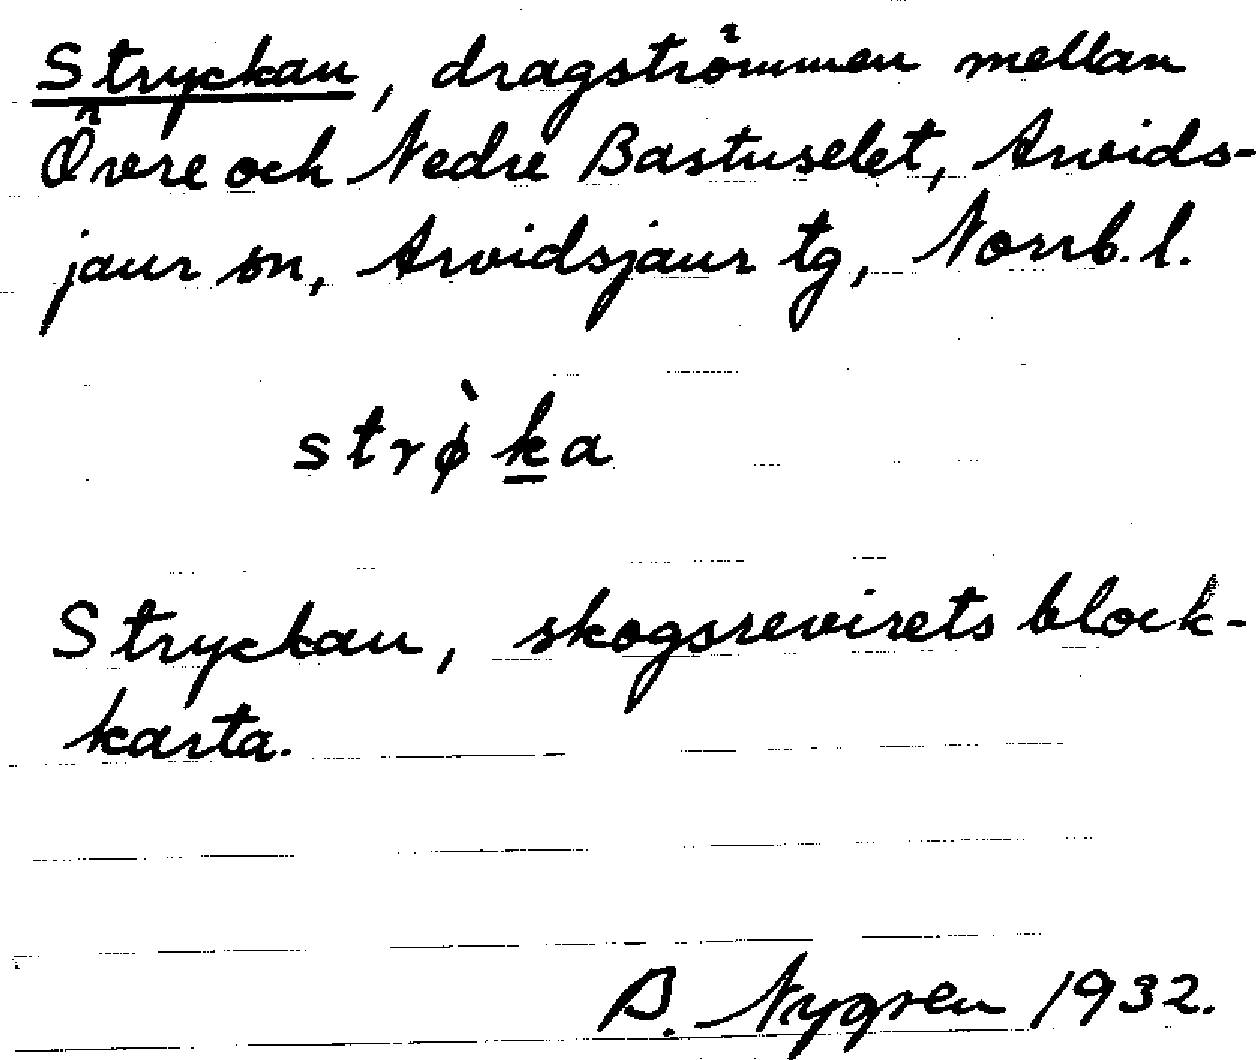 Stryckan, dragströmmen mellan
Övre och Nedre Bastuselet, Arvids-
jaur sn, Arvidsjaur tg, Norrb. l.
strø̀ḵa
Stryckan, skogsrevirets block-
karta.
B. Nygren 1932.